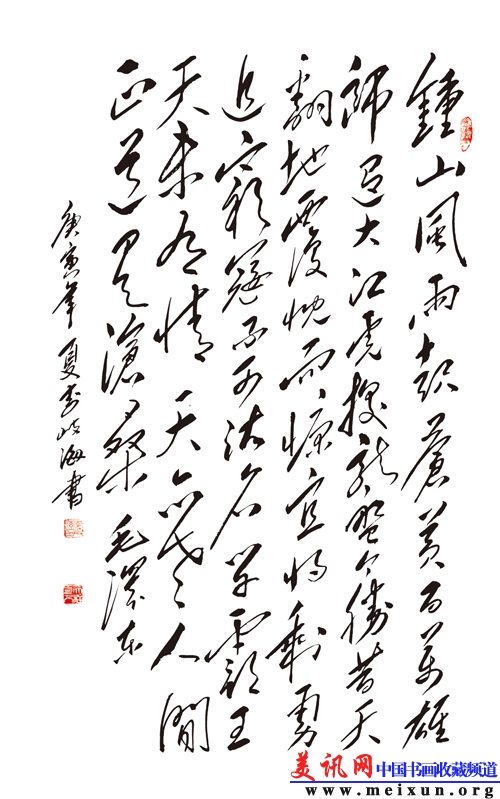 鍾山風雨起蒼黃百萬雄
師過大江虎踞龍盤今勝昔天
翻地覆慨而慷宜將剩勇
追窮寇不可沽名学霸王
天若有情天亦老人間
正道是滄桑 毛澤东
庚寅年夏李岐海書
美讯网 中国书画收藏频道
www.meixun.org